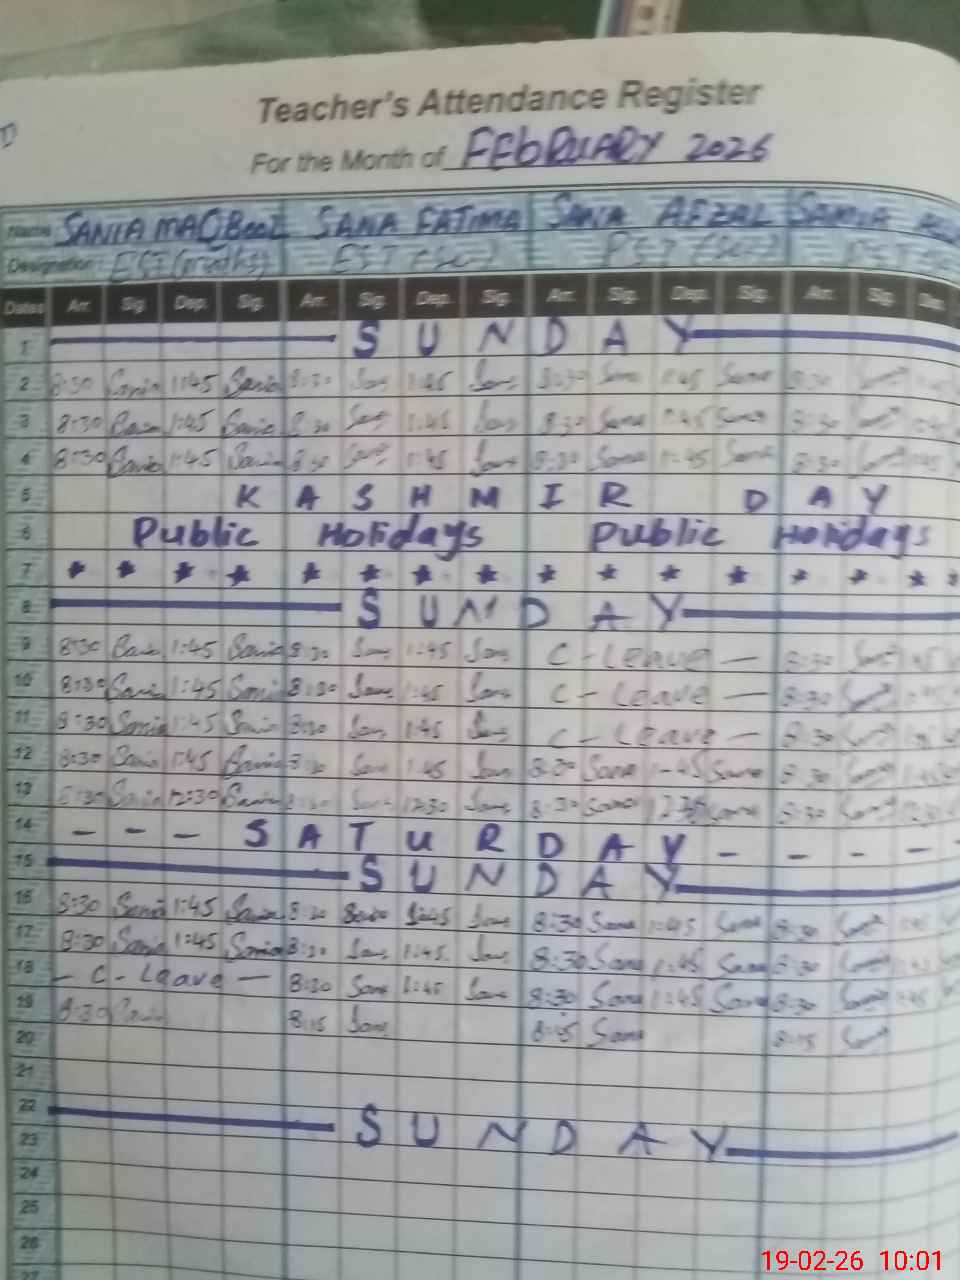 Teacher's Attendance Register
For the Month of FEBRUARY 2026
Name SANIA MAQBOOL SANA FATIMA SANIA AFZAL SAMIA
Designation EST (maths) EST (Sci) PST (Sci)
Dates Arr. Sig. Dep. Sig. Arr. Sig. Dep. Sig. Arr. Sig. Dep. Sig. Arr. Sig. Dep.
1 SUNDAY
2 8:30 Sania 1:45 Sania 8:30 Sana 1:45 Sana 8:30 Sana 1:45 Sana 8:30
3 8:30 1:45 Sania 8:30 Sana 1:45 Sana 8:30 Sana 1:45 Sana 8:30
4 8:30 Sania 1:45 Sania 8:30 Sana 1:45 Sana 8:30 Sana 1:45 Sana 8:30
5 KASHMIR DAY
6 Public Holidays Public Holidays
7 * * * * * * * * * * * * * * * *
8 SUNDAY
9 8:30 1:45 Sania 8:30 Sana 1:45 Sana C-Leave — 8:30
10 8:30 Sania 1:45 Sania 8:30 Sana 1:45 Sana C-Leave — 8:30
11 8:30 Sania 1:45 Sania 8:30 Sana 1:45 Sana C-Leave — 8:30
12 8:30 Sania 1:45 Sania 8:30 Sana 1:45 Sana 8:30 Sana 1:45 Sana 8:30
13 8:30 Sania 12:30 Sania Sana 12:30 Sana 8:30 Sana Sana 8:30
14 - - - SATURDAY - - - -
15 SUNDAY
16 8:30 Sania 1:45 Sania 8:30 1:45 Sana 8:30 Sana 1:45 Sana 8:30
17 8:30 Sania 1:45 Sania 8:30 Sana 1:45 Sana 8:30 Sana 1:45 Sana 8:30
18 - C-Leave - 8:30 Sana 1:45 Sana 8:30 Sana 1:45 Sana 8:30
19 8:30 Sania 8:15 Sana 8:15 Sana 8:15
20
21
22 SUNDAY
23
24
25
26
27
19-02-26 10:01